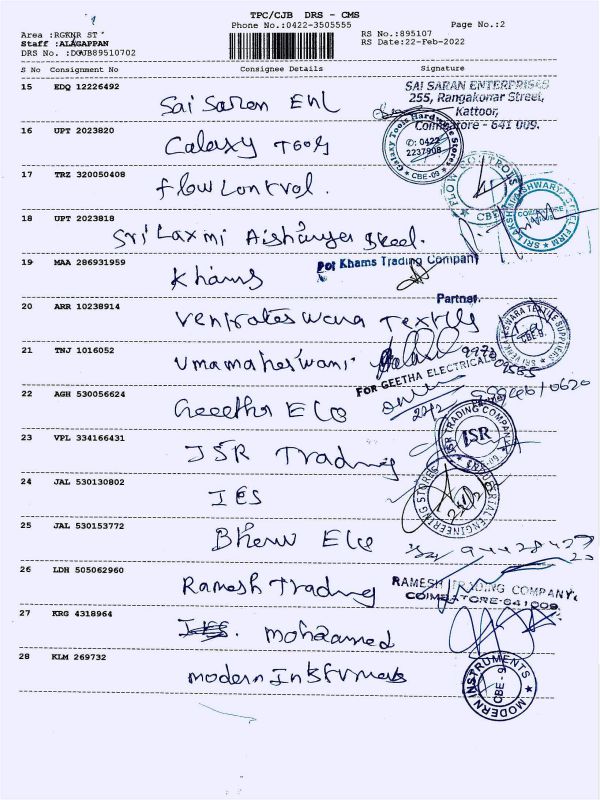 TPC/CJB DRS - CMS
Phone No.:0422-3505555 Page No.:2
Area :RGKNR ST RS No.:895107
Staff :ALAGAPPAN RS Date:22-Feb-2022
DRS No. :DGAJB89510702
S No Consignment No Consignee Details Signature
15 EDQ 12226492
Sai Saran Ent
SAI SARAN ENTERPRISES
255, Rangakonar Street,
Kattoor,
Coimbatore - 641 009.
16 UPT 2023820
Galaxy Tools
Galaxy Tools Hardware Stores
✆: 0422
2237908
★ CBE-09 ★
17 TRZ 320050408
Flow Control.
FLOW CONTROLS
CBE
18 UPT 2023818
Sri Laxmi Aishwarya Steel.
SRI LAKSHMI AISHWARYA STEEL FIRM
COIMBATORE
19 MAA 286931959
Khams
For Khams Trading Company
Partner.
20 ARR 10238914
Venkateswara Textiles
SRI VENKATESWARA TEXTILE SUPPLIERS
CBE-9.
21 TNJ 1016052
Umamaheswari
22 AGH 530056624
Geetha Ele
FOR GEETHA ELECTRICAL
23 VPL 334166431
JSR Trading
JSR TRADING COMPANY
JSR
24 JAL 530130802
IES
INDUSTRIAL ENGINEERING STORES
25 JAL 530153772
Bheru Ele
26 LDH 505062960
Ramesh Trading
RAMESH TRADING COMPANY,
COIMBATORE-641009.
27 KRG 4318964
Mohamed
28 KLM 269732
Modern Instruments
MODERN INSTRUMENTS
CBE - 9